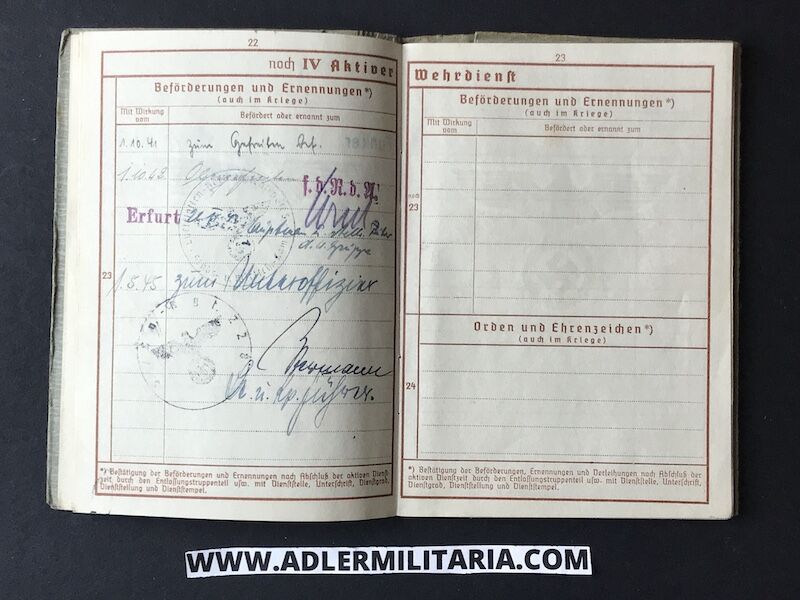 22
noch IV Aktiver
Beförderungen und Ernennungen*)
(auch im Kriege)
Mit Wirkung vom
Befördert oder ernannt zum
1.10.41 zum Gefreiten bef.
1.10.42
f.d.R.d.A.
Erfurt
23
1.5.45 zum Unteroffizier
Lt. u. Kp. Führer.
*) Bestätigung der Beförderungen und Ernennungen nach Abschluß der aktiven Dienst-
zeit durch den Entlassungstruppenteil usw. mit Dienststelle, Unterschrift, Dienstgrad,
Dienststellung und Dienststempel.
23
Wehrdienst
Beförderungen und Ernennungen*)
(auch im Kriege)
Mit Wirkung vom
Befördert oder ernannt zum
noch
23
Orden und Ehrenzeichen*)
(auch im Kriege)
24
*) Bestätigung der Beförderungen, Ernennungen und Verleihungen nach Abschluß der
aktiven Dienstzeit durch den Entlassungstruppenteil usw. mit Dienststelle, Unterschrift,
Dienstgrad, Dienststellung und Dienststempel.
WWW.ADLERMILITARIA.COM